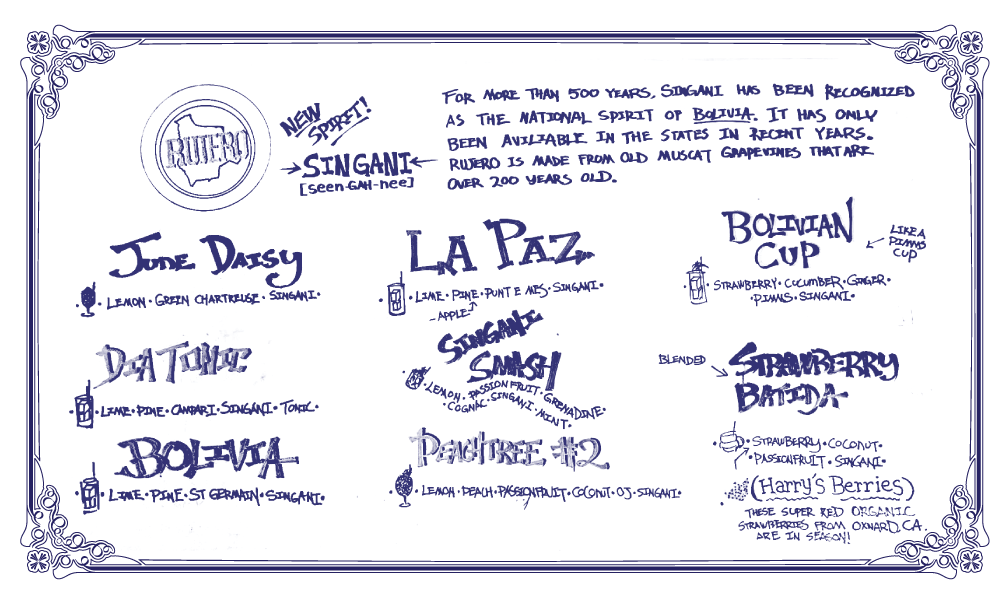 RUJERO
NEW
SPIRIT!
SINGANI
[seen-GAH-nee]
FOR MORE THAN 500 YEARS, SINGANI HAS BEEN RECOGNIZED
AS THE NATIONAL SPIRIT OF BOLIVIA. IT HAS ONLY
BEEN AVILIABLE IN THE STATES IN RECENT YEARS.
RUJERO IS MADE FROM OLD MUSCAT GRAPEVINES THAT ARE
OVER 200 YEARS OLD.
JUNE DAISY
LEMON · GREEN CHARTREUSE · SINGANI ·
LA PAZ
· LIME · PINE · PUNT E MES · SINGANI ·
- APPLE
BOLIVIAN
CUP
LIKE A
PIMMS
CUP
STRAWBERRY · CUCUMBER · GINGER ·
· PIMMS · SINGANI ·
DIA TONIC
· LIME · PINE · CAMPARI · SINGANI · TONIC ·
SINGANI
SMASH
· LEMON · PASSIONFRUIT · GRENADINE ·
· COGNAC · SINGANI · MINT ·
BLENDED
STRAWBERRY
BATIDA
· STRAWBERRY · COCONUT ·
· PASSIONFRUIT · SINGANI ·
BOLIVIA
· LIME · PINE · ST GERMAIN · SINGANI ·
PEACHTREE #2
· LEMON · PEACH · PASSIONFRUIT · COCONUT · OJ · SINGANI ·
(Harry's Berries)
THESE SUPER RED ORGANIC
STRAWBERRIES FROM OXNARD, CA.
ARE IN SEASON!